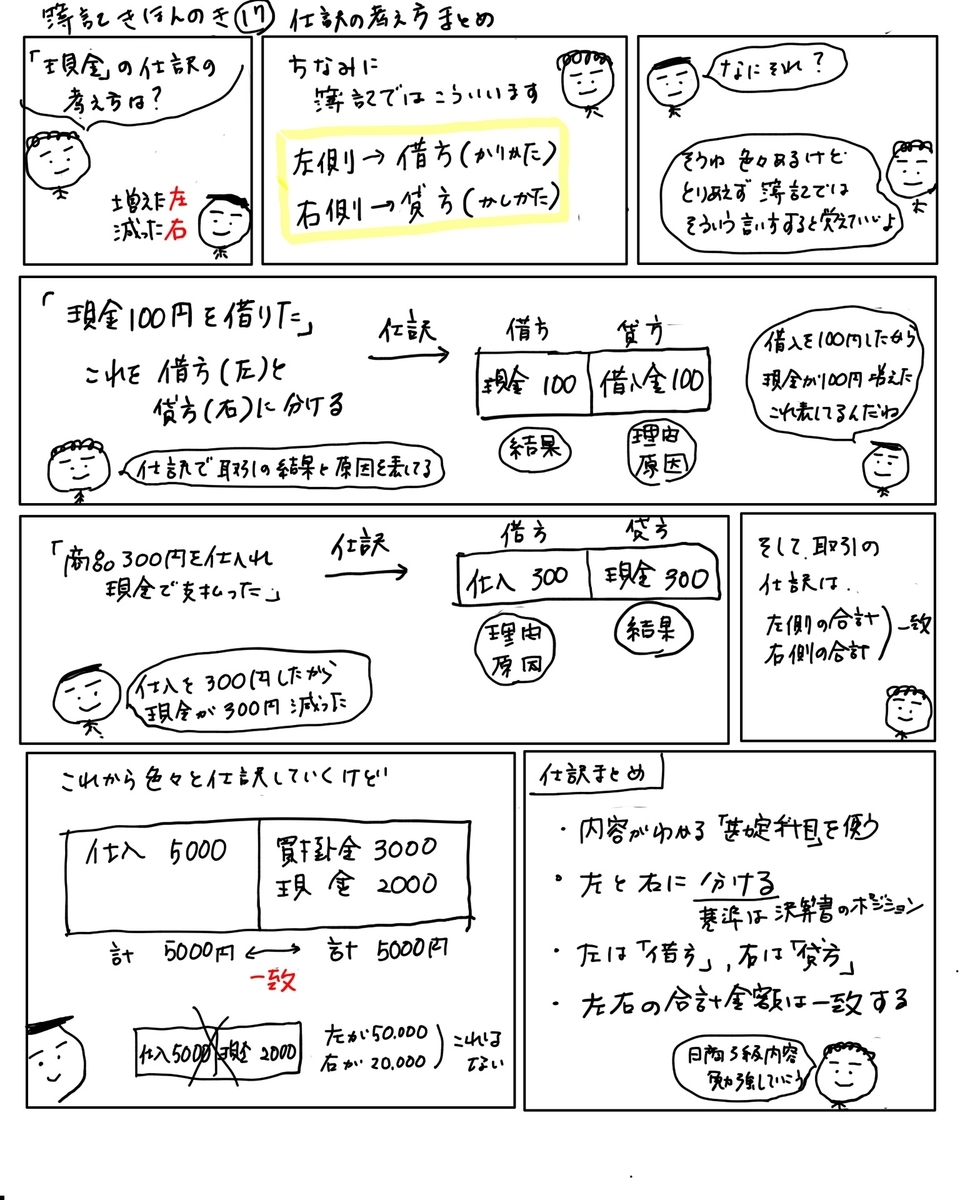 簿記きほんのき⑰ 仕訳の考え方まとめ
「現金」の仕訳の
考え方は?
増えた左
減った右
ちなみに
簿記ではこういいます
左側→借方(かりかた)
右側→貸方(かしかた)
なにそれ?
そうね 色々あるけど
とりあえず 簿記では
そういう言い方すると覚えていいよ
「現金100円を借りた」
これを 借方(左)と
貸方(右)に分ける
仕訳
借方 貸方
現金 100 借入金100
結果
理由
原因
仕訳で取引の結果と原因を表してる
借入を100円したから
現金が100円増えた
これ表してるんだね
「商品300円を仕入れ
現金で支払った」
仕訳
借方 貸方
仕入 300 現金 300
理由
原因
結果
仕入を300円したから
現金が300円減った
そして取引の
仕訳は..
左側の合計
右側の合計
一致
これから色々と仕訳していくけど
仕入 5000
買掛金 3000
現金 2000
計 5000円 ⟷ 計 5000円
一致
仕入5000 現金 2000
左が50.000
右が20.000
これは
ない
仕訳まとめ
・内容がわかる「勘定科目」を使う
・左と右に分ける
基準は決算書のポジション
・左は「借方」,右は「貸方」
・左右の合計金額は一致する
日商3級内容
勉強していこう